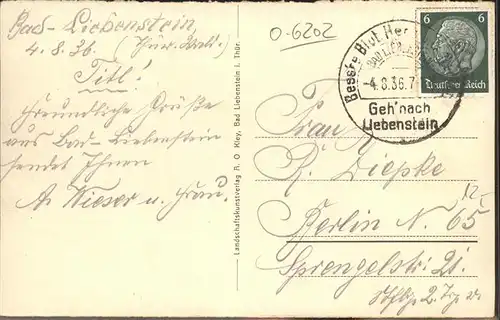 Bad-Liebenstein,
4.8.36. (Thür. Wald.)
Titl!
Freundliche Grüße
aus Bad-Liebenstein
sendet Ihnen
A. Wieser u. Frau.
Landschaftskunstverlag R. O Kley, Bad Liebenstein i. Thür.
O-6202
Besste Blut Her
BAD LIEB
-4.8.36.7
Geh'nach
Liebenstein
6 6
Deutsches Reich
Frau
R. Diepke
Berlin N. 65
Sprengelstr. 21.
2. Trp.
12.-